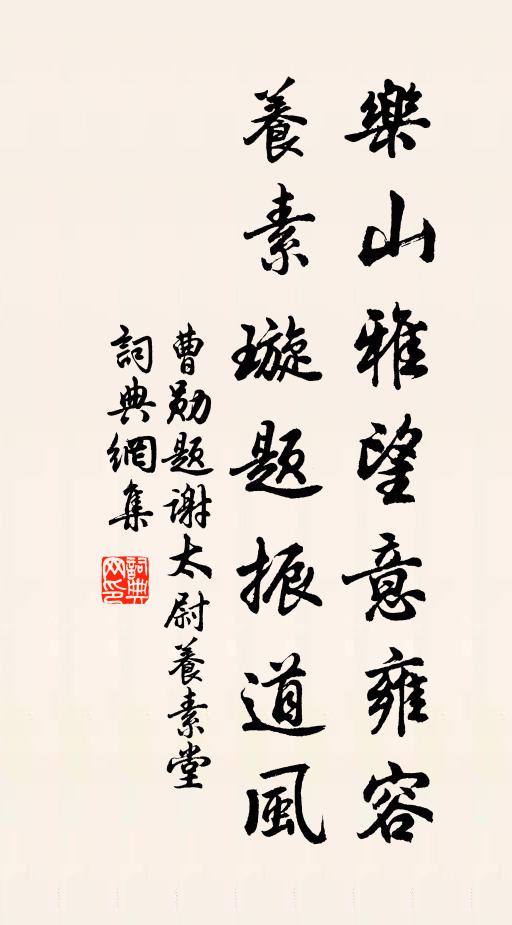 樂山雅望意雍容
養素璇題振道風
曹勛题謝太尉養素堂
詞典網集
詞典网印